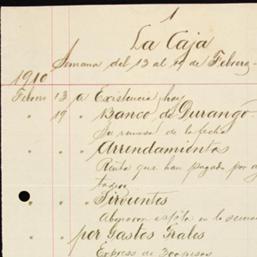 1
La Caja
Semana del 13 al 19 de Febrero
1910
Febro 13 a Existencia hoy
" 19 " Banco de Durango
Su remesa de la fecha
" " " Arrendamientos
Renta que han pagado por
" " " Sirvientes
en la
" " " por Gastos Grales
Express de